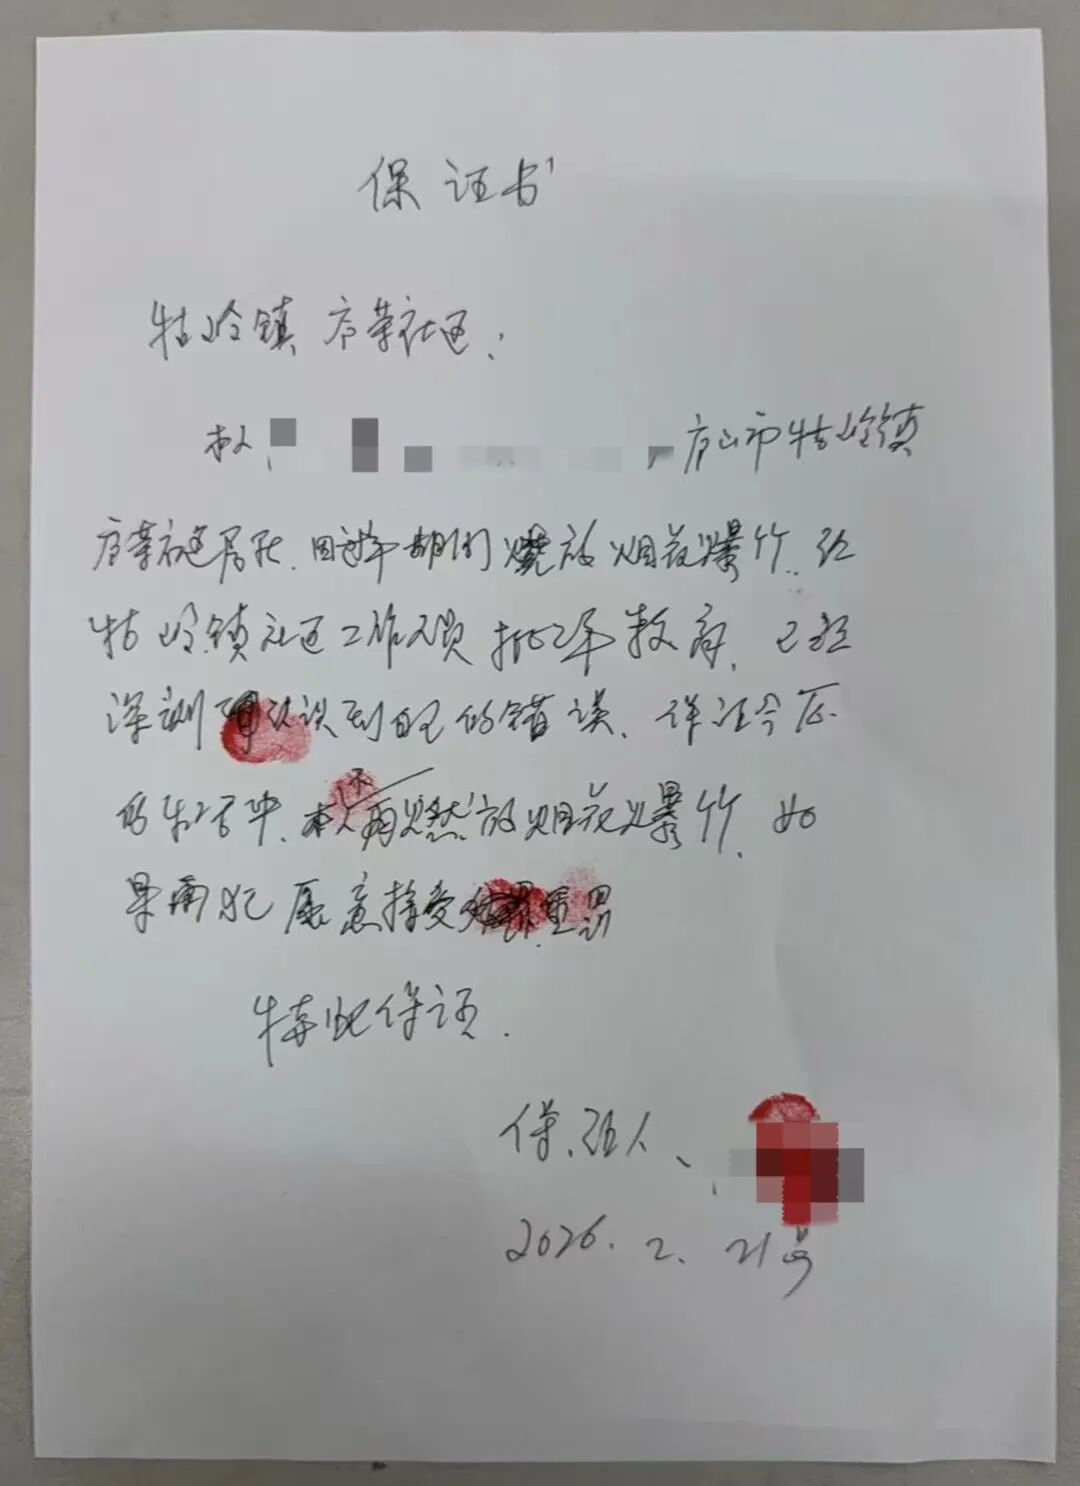 保证书
牯岭镇芦荟社区:
本人,庐山市牯岭镇
居民,因过年期间燃放烟花爆竹,经
牯岭镇社区工作人员批评教育,已经
深刻认识到自己的错误,保证今后
的生活中,本人不再燃放烟花爆竹,如
果再犯愿意接受重罚
特此保证.
保证人、
2026.2.21号